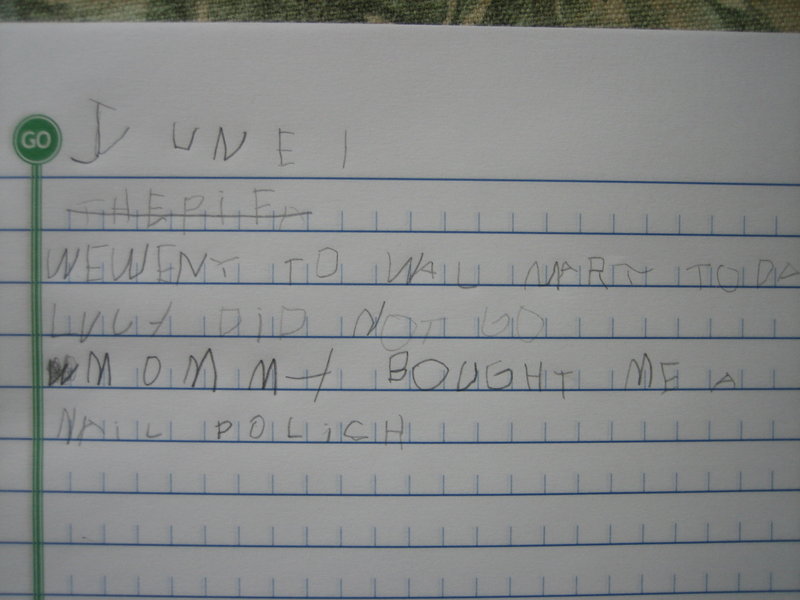 GO
JUNE 1
THEPIFA
WEWENT TO WAL MART TODA
LUCY DID NOT GO
MOMMY BOUGHT ME A
NAiL POLiCH